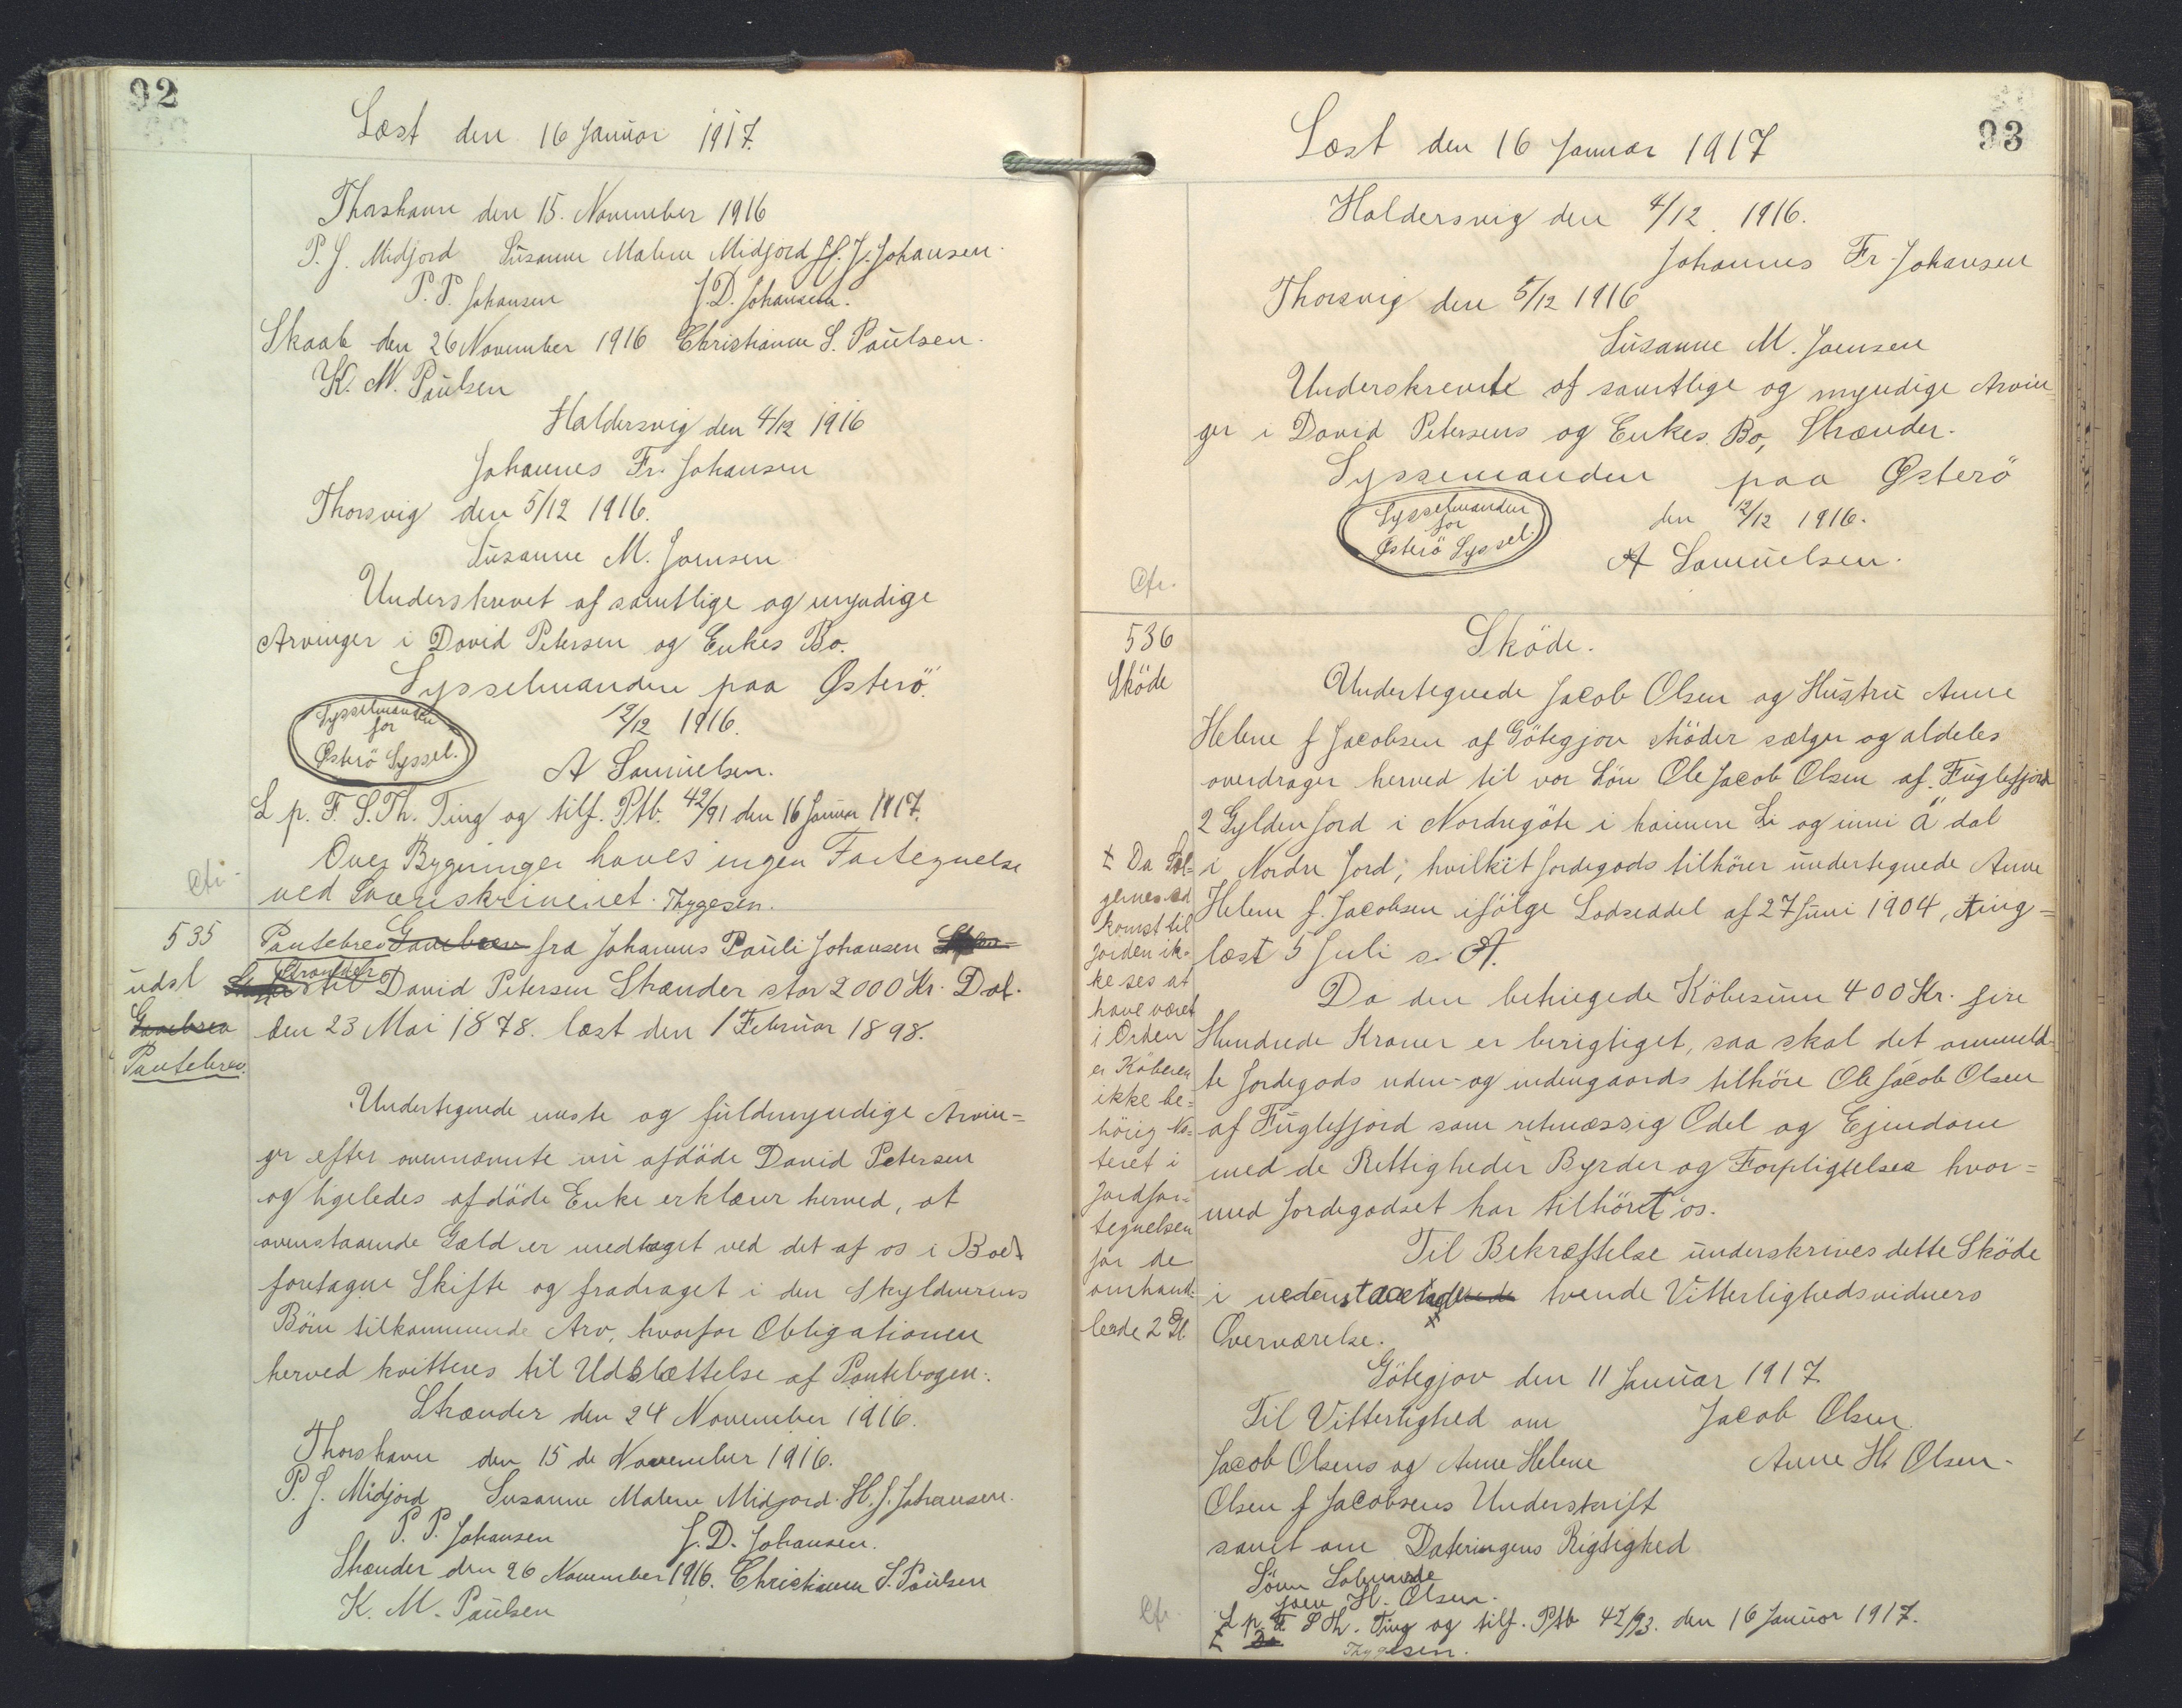 92
Læst den 16 Januar 1917.
Thorshavn den 15. November 1916
P. J. Midjord Susanne Malene Midjord H. J. Johansen.
P. P. Johansen J. D. Johansen.
Skaale den 26 November 1916 Christianne S. Paulsen.
K. M. Paulsen
Haldersvig den 4/12 1916
Johannes Fr. Johansen
Thorsvig den 5/12 1916.
Susanne M. Joensen
Underskrevet af samtlige og myndige
Arvinger i David Petersen og Enkes Bo.
Sysselmanden paa Østerö.
Sysselmanden
for
Østerö Syssel.
12/12 1916.
A Samuelsen.
L p. F. S. Th. Ting og tilf. Ptb. 42/91 den 16 Januar 1917.
Over Bygninger haves ingen Fortegnelse
ved Sorenskriveriet. Thygesen.
cfr.
535
udsl
Gavebrev
Pantebrev.
Pantebrev Gavebrev fra Johannes Pauli Johansen
Strænder til David Petersen Strænder stor 2000 Kr. Dat.
den 23 Mai 1878. læst den 1 Februar 1898.
Undertegnede eneste og fuldmyndige Arvin=
ger efter ovennævnte nu afdöde David Petersen
og ligeledes afdöde Enke erklærer herved, at
ovenstaaende Gæld er medtaget ved det af os i Boet
foretagne Skifte og fradraget i den Skyldneres
Börn tilkommende Arv, hvorfor Obligationen
herved kvitteres til Udslættelse af Pantebogen.
Strænder den 24 November 1916.
Thorshavn den 15 de November 1916.
P. J. Midjord Susanne Malene Midjord. H. J. Johansen.
P. P. Johansen J. D. Johansen.
Strænder den 26 November 1916. Christianne S. Paulsen
K. M. Paulsen
93
Læst den 16 Januar 1917
Haldersvig den 4/12 1916.
Johannes Fr. Johansen
Thorsvig den 5/12 1916
Susanne M. Joensen
Underskrevet af samtlige og myndige Arvin
ger i David Petersens og Enkes Bo, Strænder.
Sysselmanden paa Østerö
Sysselmanden
for
Østerö Syssel.
den 12/12 1916.
A Samuelsen.
Cfr.
536
Sköde
Sköde.
Undertegnede Jacob Olsen og Hustru Anne
Helene f Jacobsen af Götegjov Stöder sælger og aldeles
overdrager herved til vor Sön Ole Jacob Olsen af Fuglefjord
2 Gylden Jord i Nordregöte i heimen Li og inni á dal
i Nordre Jord, hvilket Jordegods tilhörer undertegnede Anne
Helene f. Jacobsen ifölge Lodseddel af 27 Juni 1904, ting=
læst 5 Juli s. A.
Da den betingede Köbesum 400 Kr. fire
Hundrede Kroner er berigtiget, saa skal det ommeld
te Jordegods uden- og indengaards tilhöre Ole Jacob Olsen
af Fuglefjord som retmæssig Odel og Ejendom
med de Rettigheder Byrder og Forpligtelser hvor=
med Jordegodset har tilhört os.
Til Bekræftelse underskrives dette Sköde
i tvende Vitterlighedsvidners
Overværelse.
Götegjov den 11 Januar 1917
Til Vitterlighed om Jacob Olsen
Jacob Olsens og Anne Helene Anne H. Olsen.
Olsen f Jacobsens Underskrift
samt om Dateringens Rigtighed
Joen H. Olsen.
L p. F. S Th. Ting og tilf. Ptb 42/93. den 16 Januar 1917.
Thygesen.
Cfr.
Da Sæl=
gernes Ad
komst til
Jorden ik=
ke ses at
have været
i Orden
er Köberen
ikke be=
hörig No=
teret i
Jordfor=
tegnelsen
for de
omhand=
lede 2 Gl